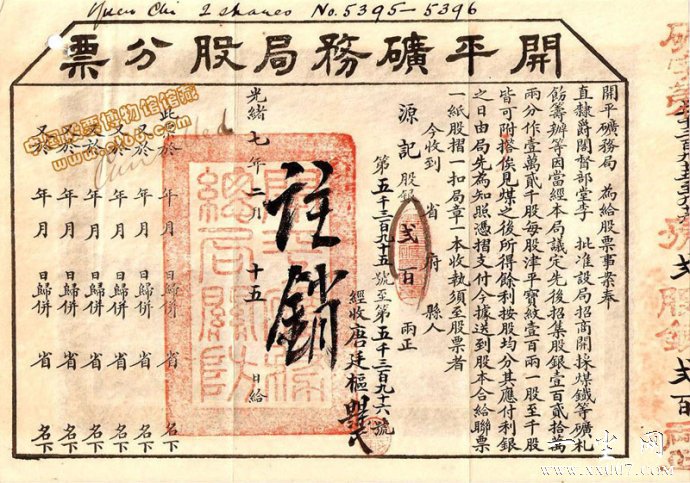 Yuen Chi 2 shares No. 5395-5396
開平礦務局股分票
開平礦務局 為給股票事案奉
直隸爵閣督部堂李 批准設局招商開採煤鐵等礦札
飭籌辦等因當經本局議定先後招集股銀壹百貳拾萬
兩分作壹萬貳千股每股津平寶紋壹百兩一股至千股
皆可附搭俟見煤之後所得餘利按股均分其應付利銀
之日由局先為知照憑摺支付今據送到股本合給聯票
一紙股摺一扣局章一本收執須至股票者
今收到 省 府 縣人
源記 股銀 貳百 兩正
第五千三百九十五號至第五千三百九十六號
經收唐廷樞
註銷
光緒七年二月十五日給
此票於 年 月 日歸併 省 名下
又於 年 月 日歸併 省 名下
又於 年 月 日歸併 省 名下
又於 年 月 日歸併 省 名下
又於 年 月 日歸併 省 名下
又於 年 月 日歸併 省 名下
貳百
一尘网
www.xxdd7.com